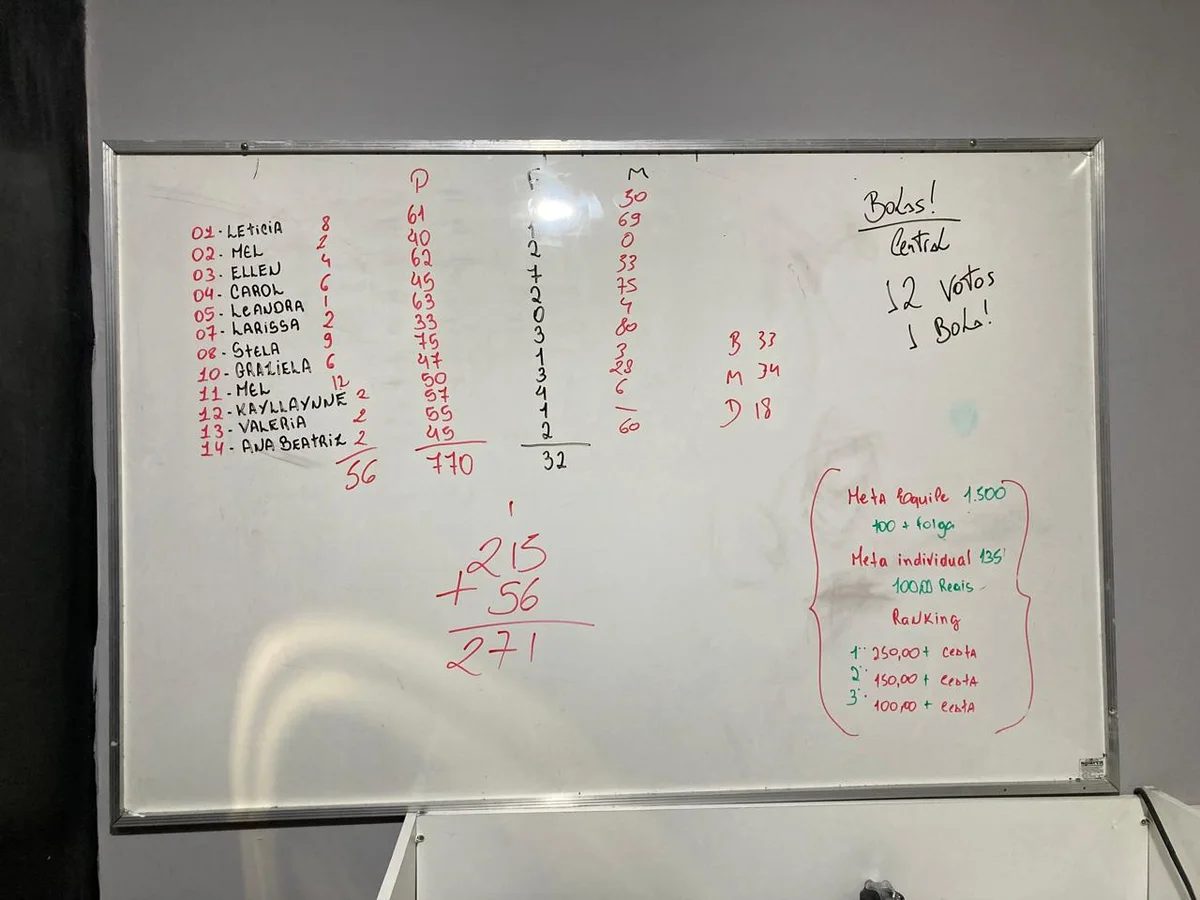 P F M
01 - LETICIA 8 61 30
02 - MEL 2 40 1 69
03 - ELLEN 4 62 2 0
04 - CAROL 6 45 7 33
05 - LEANDRA 1 63 2 75
07 - LARISSA 2 33 0 4
08 - STELA 9 75 3 80
10 - GRAZIELA 6 47 1 3
11 - MEL 12 50 3 28
12 - KAYLLAYNNE 2 57 4 6
13 - VALERIA 2 55 1 —
14 - ANA BEATRIZ 2 45 2 60
56 770 32
1
215
+ 56
271
B 33
M 34
D 18
Bolas!
Central
12 Votos
1 Bola!
Meta Equipe 1.500
100 + folga
Meta individual 135
100,00 Reais
Ranking
1º 250,00 + Cesta
2º 150,00 + Cesta
3º 100,00 + Cesta